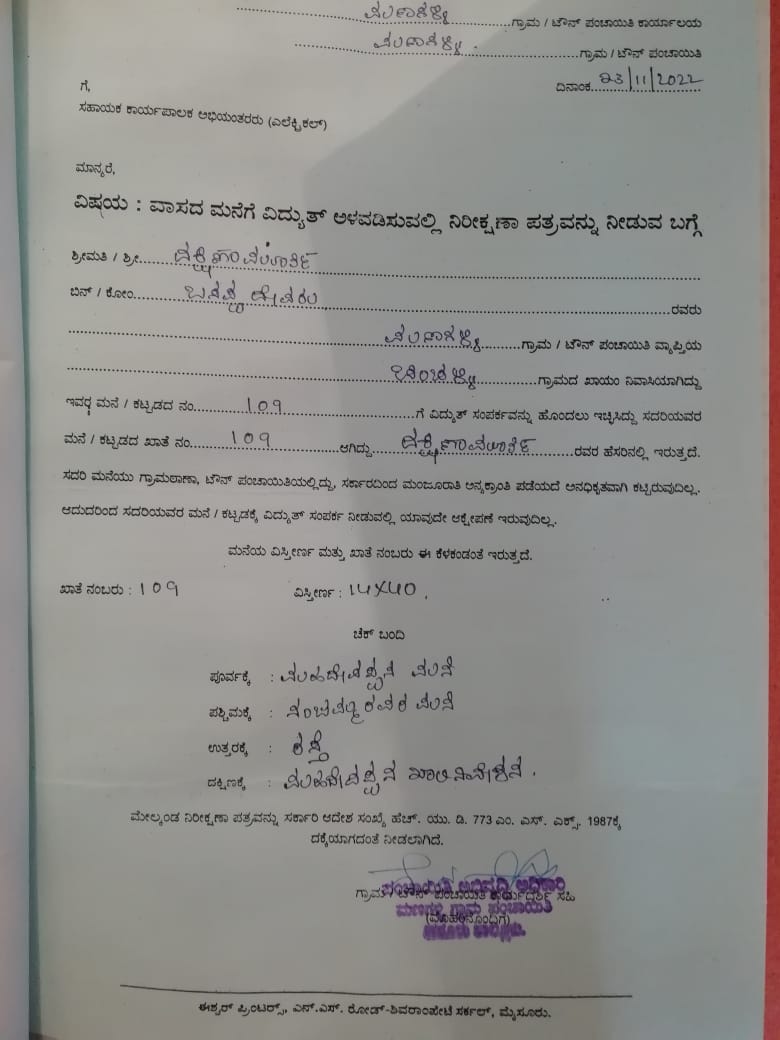 ಮಣಗಳ್ಳಿ ಗ್ರಾಮ / ಟೌನ್ ಪಂಚಾಯಿತಿ ಕಾರ್ಯಾಲಯ
ಮಣಗಳ್ಳಿ ಗ್ರಾಮ / ಟೌನ್ ಪಂಚಾಯಿತಿ
ದಿನಾಂಕ 23/11/2022
ಗೆ,
ಸಹಾಯಕ ಕಾರ್ಯಪಾಲಕ ಅಭಿಯಂತರರು (ಎಲೆಕ್ಟ್ರಿಕಲ್)
ಮಾನ್ಯರೆ,
ವಿಷಯ : ವಾಸದ ಮನೆಗೆ ವಿದ್ಯುತ್ ಅಳವಡಿಸುವಲ್ಲಿ ನಿರೀಕ್ಷಣಾ ಪತ್ರವನ್ನು ನೀಡುವ ಬಗ್ಗೆ
ಶ್ರೀಮತಿ / ಶ್ರೀ ದಕ್ಷಿಣಾಮೂರ್ತಿ
ಬಿನ್ / ಕೋಂ ಬಸಪ್ಪ ದೇವರು ರವರು
ಮಣಗಳ್ಳಿ ಗ್ರಾಮ / ಟೌನ್ ಪಂಚಾಯಿತಿ ವ್ಯಾಪ್ತಿಯ
ಗ್ರಾಮದ ಖಾಯಂ ನಿವಾಸಿಯಾಗಿದ್ದು
ಇವರ ಮನೆ / ಕಟ್ಟಡದ ನಂ. 109 ಗೆ ವಿದ್ಯುತ್ ಸಂಪರ್ಕವನ್ನು ಹೊಂದಲು ಇಚ್ಛಿಸಿದ್ದು ಸದರಿಯವರ
ಮನೆ / ಕಟ್ಟಡದ ಖಾತೆ ನಂ. 109 ಆಗಿದ್ದು ದಕ್ಷಿಣಾಮೂರ್ತಿ ರವರ ಹೆಸರಿನಲ್ಲಿ ಇರುತ್ತದೆ.
ಸದರಿ ಮನೆಯು ಗ್ರಾಮಠಾಣಾ, ಟೌನ್ ಪಂಚಾಯಿತಿಯಲ್ಲಿದ್ದು, ಸರ್ಕಾರದಿಂದ ಮಂಜೂರಾತಿ ಅನ್ಯಕ್ರಾಂತಿ ಪಡೆಯದೆ ಅನಧಿಕೃತವಾಗಿ ಕಟ್ಟಿರುವುದಿಲ್ಲ.
ಆದುದರಿಂದ ಸದರಿಯವರ ಮನೆ / ಕಟ್ಟಡಕ್ಕೆ ವಿದ್ಯುತ್ ಸಂಪರ್ಕ ನೀಡುವಲ್ಲಿ ಯಾವುದೇ ಆಕ್ಷೇಪಣೆ ಇರುವುದಿಲ್ಲ.
ಮನೆಯ ವಿಸ್ತೀರ್ಣ ಮತ್ತು ಖಾತೆ ನಂಬರು ಈ ಕೆಳಕಂಡಂತೆ ಇರುತ್ತದೆ.
ಖಾತೆ ನಂಬರು : 109 ವಿಸ್ತೀರ್ಣ : 14X40.
ಚೆಕ್ ಬಂದಿ
ಪೂರ್ವಕ್ಕೆ : ಮಹದೇವಪ್ಪನ ಮನೆ
ಪಶ್ಚಿಮಕ್ಕೆ : ಮನೆ
ಉತ್ತರಕ್ಕೆ : ರಸ್ತೆ
ದಕ್ಷಿಣಕ್ಕೆ : ಮಹದೇವಪ್ಪನ ಖಾಲಿ ನಿವೇಶನ.
ಮೇಲ್ಕಂಡ ನಿರೀಕ್ಷಣಾ ಪತ್ರವನ್ನು ಸರ್ಕಾರಿ ಆದೇಶ ಸಂಖ್ಯೆ ಹೆಚ್. ಯು. ಡಿ. 773 ಎಂ. ಎಸ್. ಎಕ್ಸ್. 1987ಕ್ಕೆ
ದಕ್ಕೆಯಾಗದಂತೆ ನೀಡಲಾಗಿದೆ.
ಪಂಚಾಯಿತಿ ಅಭಿವೃದ್ಧಿ ಅಧಿಕಾರಿ
ಗ್ರಾಮ / ಟೌನ್ ಪಂಚಾಯಿತಿ ಕಾರ್ಯದರ್ಶಿ ಸಹಿ
ಗ್ರಾಮ ಪಂಚಾಯಿತಿ
(ಮೊಹರಿನೊಂದಿಗೆ)
ಈಶ್ವರ್ ಪ್ರಿಂಟರ್ಸ್, ಎನ್.ಎಸ್. ರೋಡ್-ಶಿವರಾಂಪೇಟೆ ಸರ್ಕಲ್, ಮೈಸೂರು.